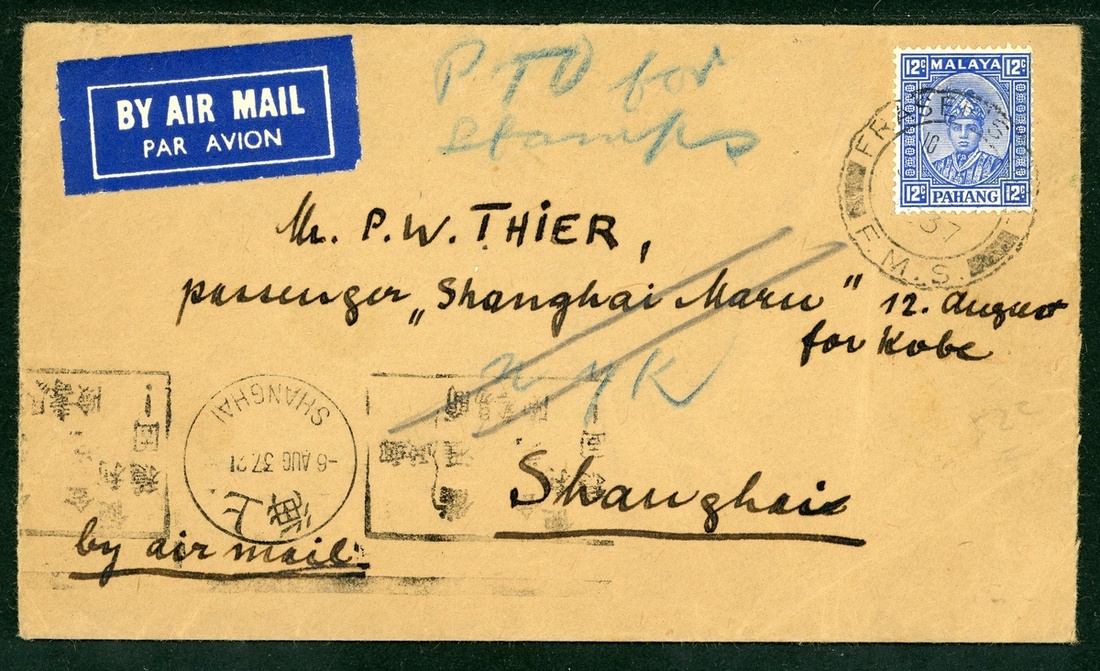 BY AIR MAIL
PAR AVION
PTO for
stamps
12c MALAYA 12c
12c PAHANG 12c
FRASER
10
37
F.M.S.
Mr. P.W. THIER,
passenger „Shanghai Maru" 12. August
for Kobe
N Y K
SHANGHAI
-6 AUG 37.21
上海
Shanghai
by air mail.